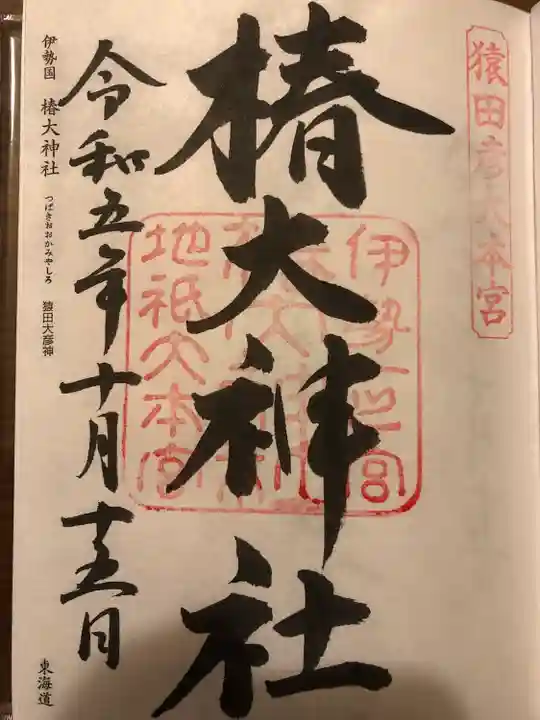 猿田彦大本宮
椿大神社
伊勢一之宮
地祇大本宮
令和五年十月十五日
伊勢国 椿大神社 つばきおおかみやしろ 猿田大彦神
東海道